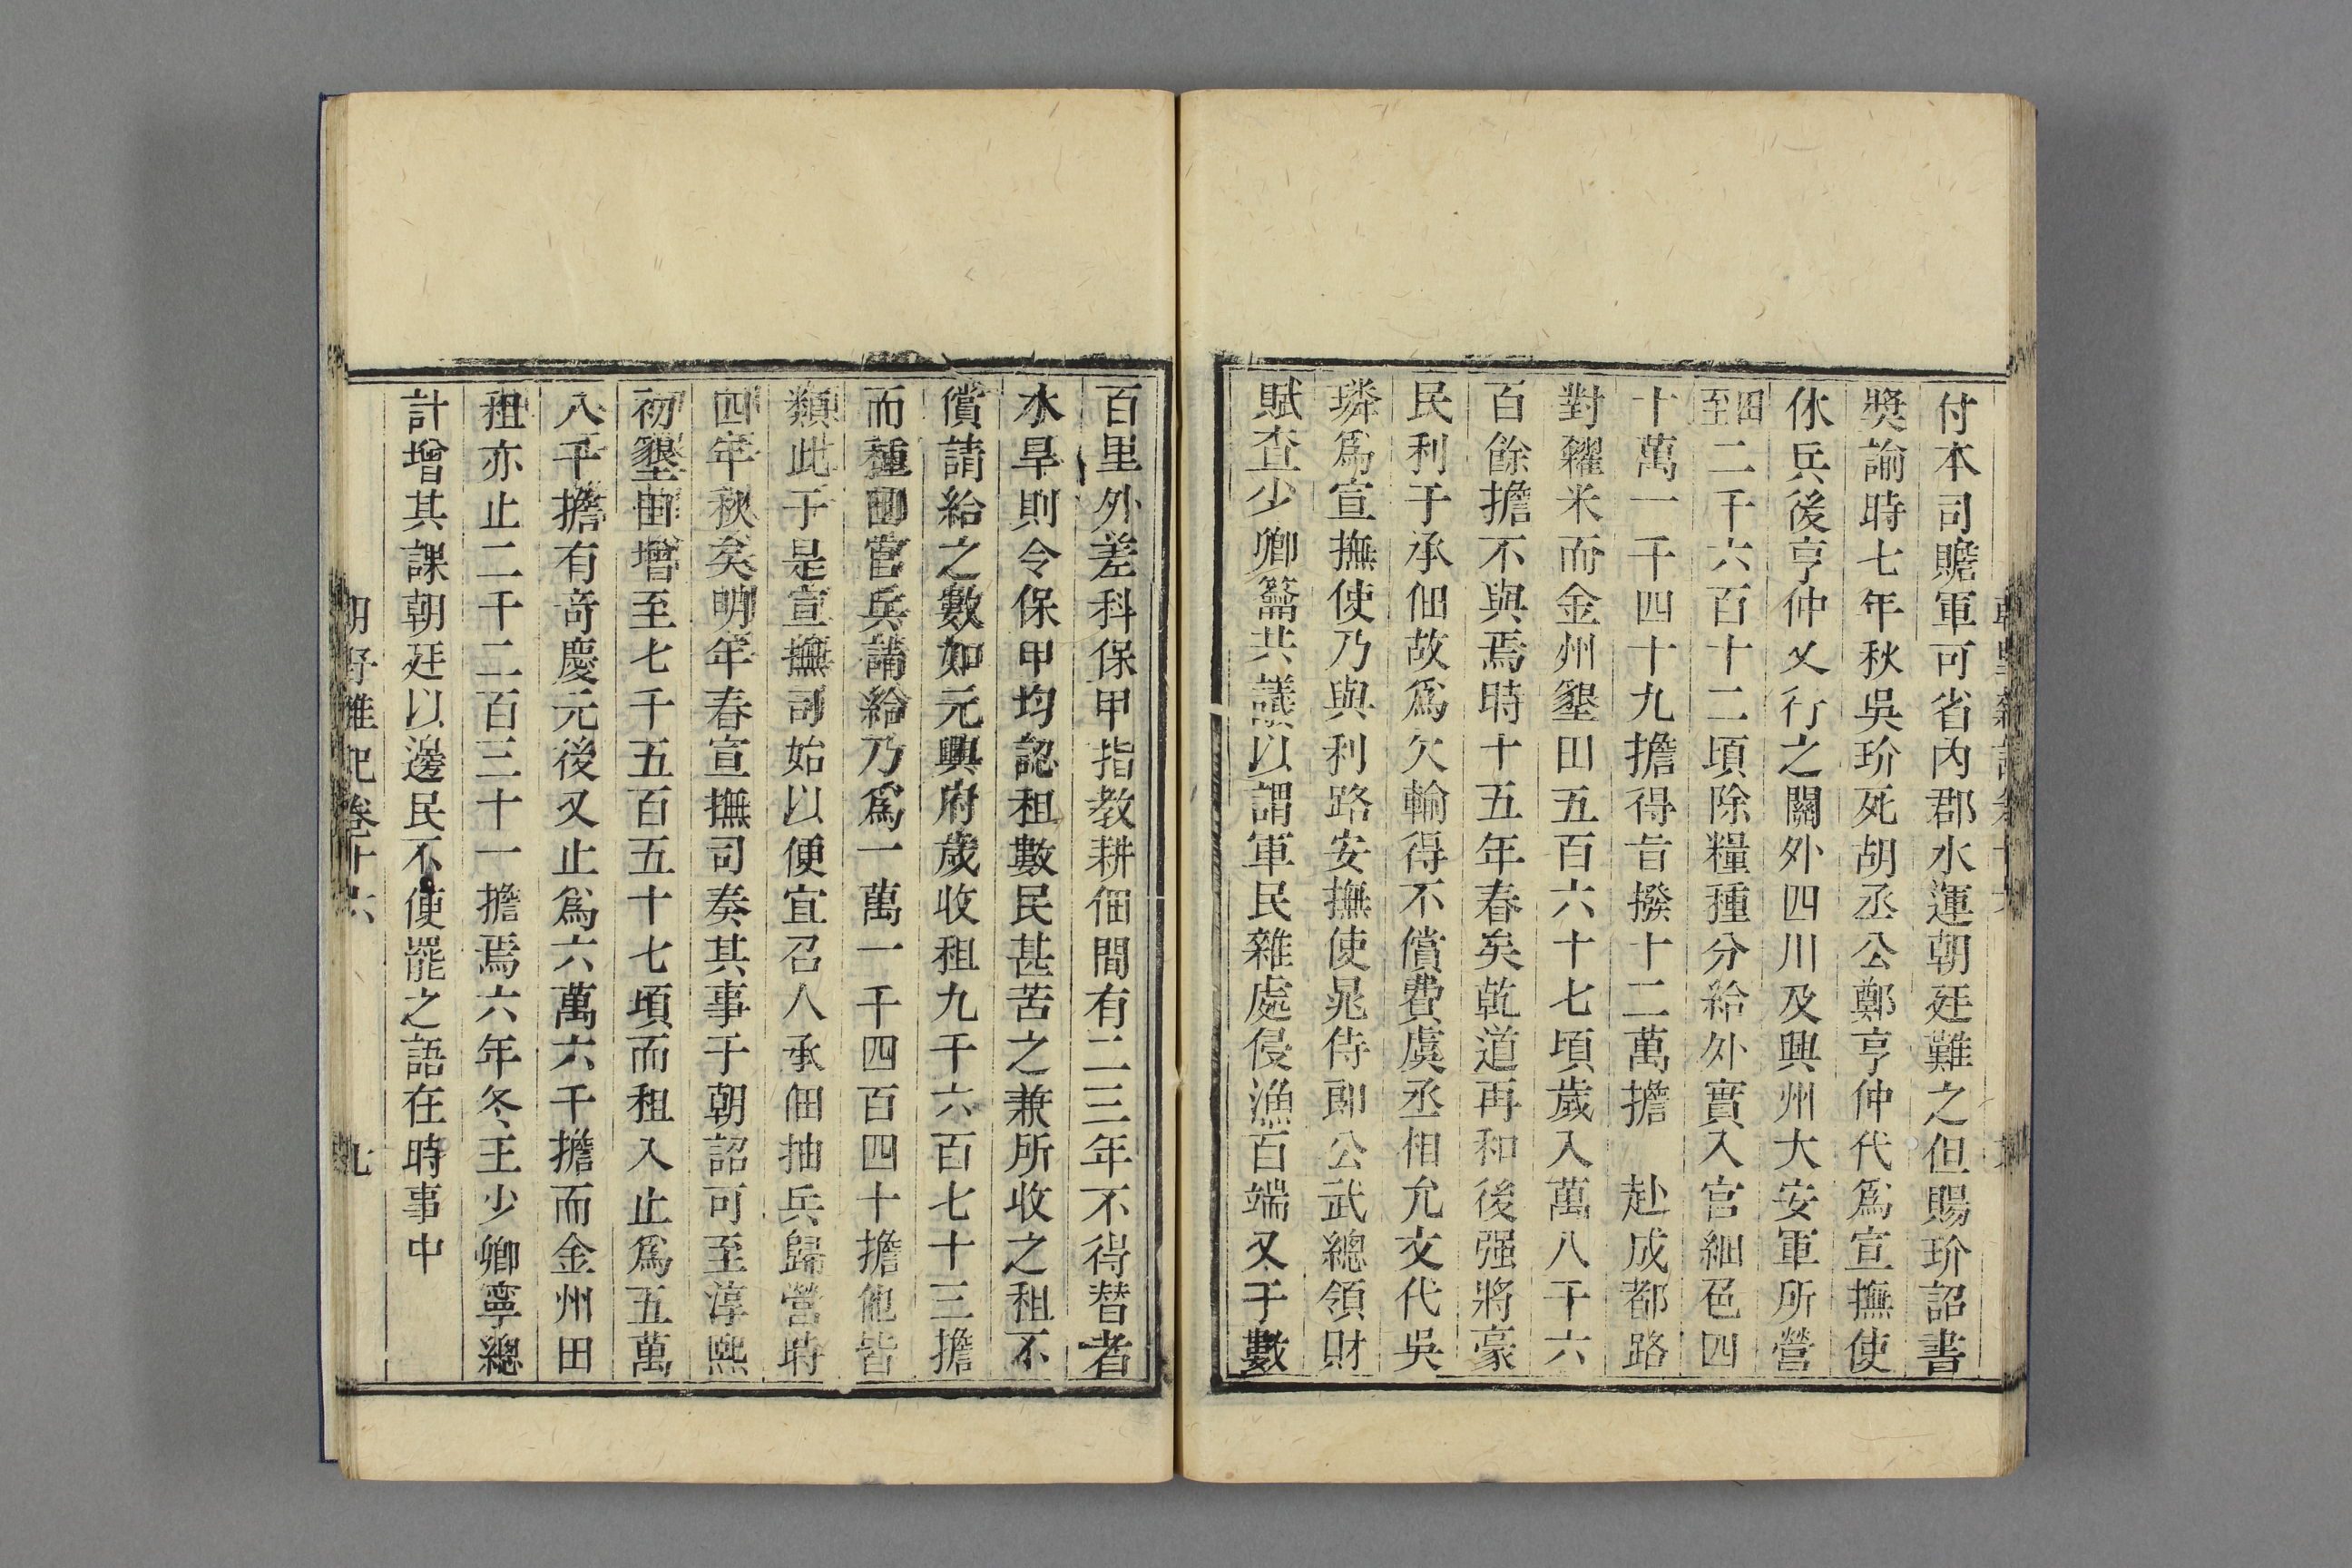 付本司贍軍可省內郡水運朝廷難之但賜玠詔書
奬諭時七年秋吳玠死胡丞公鄭亨仲代爲宣撫使
休兵後亨仲又行之關外四川及興州大安軍所營
田至二千六百十二頃除糧種分給外實入官細色四
十萬一千四十九擔得旨撥十二萬擔 赴成都路
對糴米而金州墾田五百六十七頃歲入萬八千六
百餘擔不與焉時十五年春矣乾道再和後强將豪
民利于承佃故爲欠輸得不償費虞丞相允文代吳
璘爲宣撫使乃與利路安撫使晁侍郎公武總領財
賦查少卿籥共議以謂軍民雜處侵漁百端又于數
百里外差科保甲指教耕佃間有二三年不得替者
水旱則令保甲均認租數民甚苦之兼所收之租不
償請給之數如元興府歲收租九千六百七十三擔
而種田官兵請給乃爲一萬一千四百四十擔他皆
類此于是宣撫司始以便宜召人承佃抽兵歸營時
四年秋矣明年春宣撫司奏其事于朝詔可至淳熙
初墾田增至七千五百五十七頃而租入止爲五萬
八千擔有奇慶元後又止爲六萬六千擔而金州田
租亦止二千二百三十一擔焉六年冬王少卿寧總
計增其課朝廷以邊民不便罷之語在時事中
朝野雜記卷十六 九